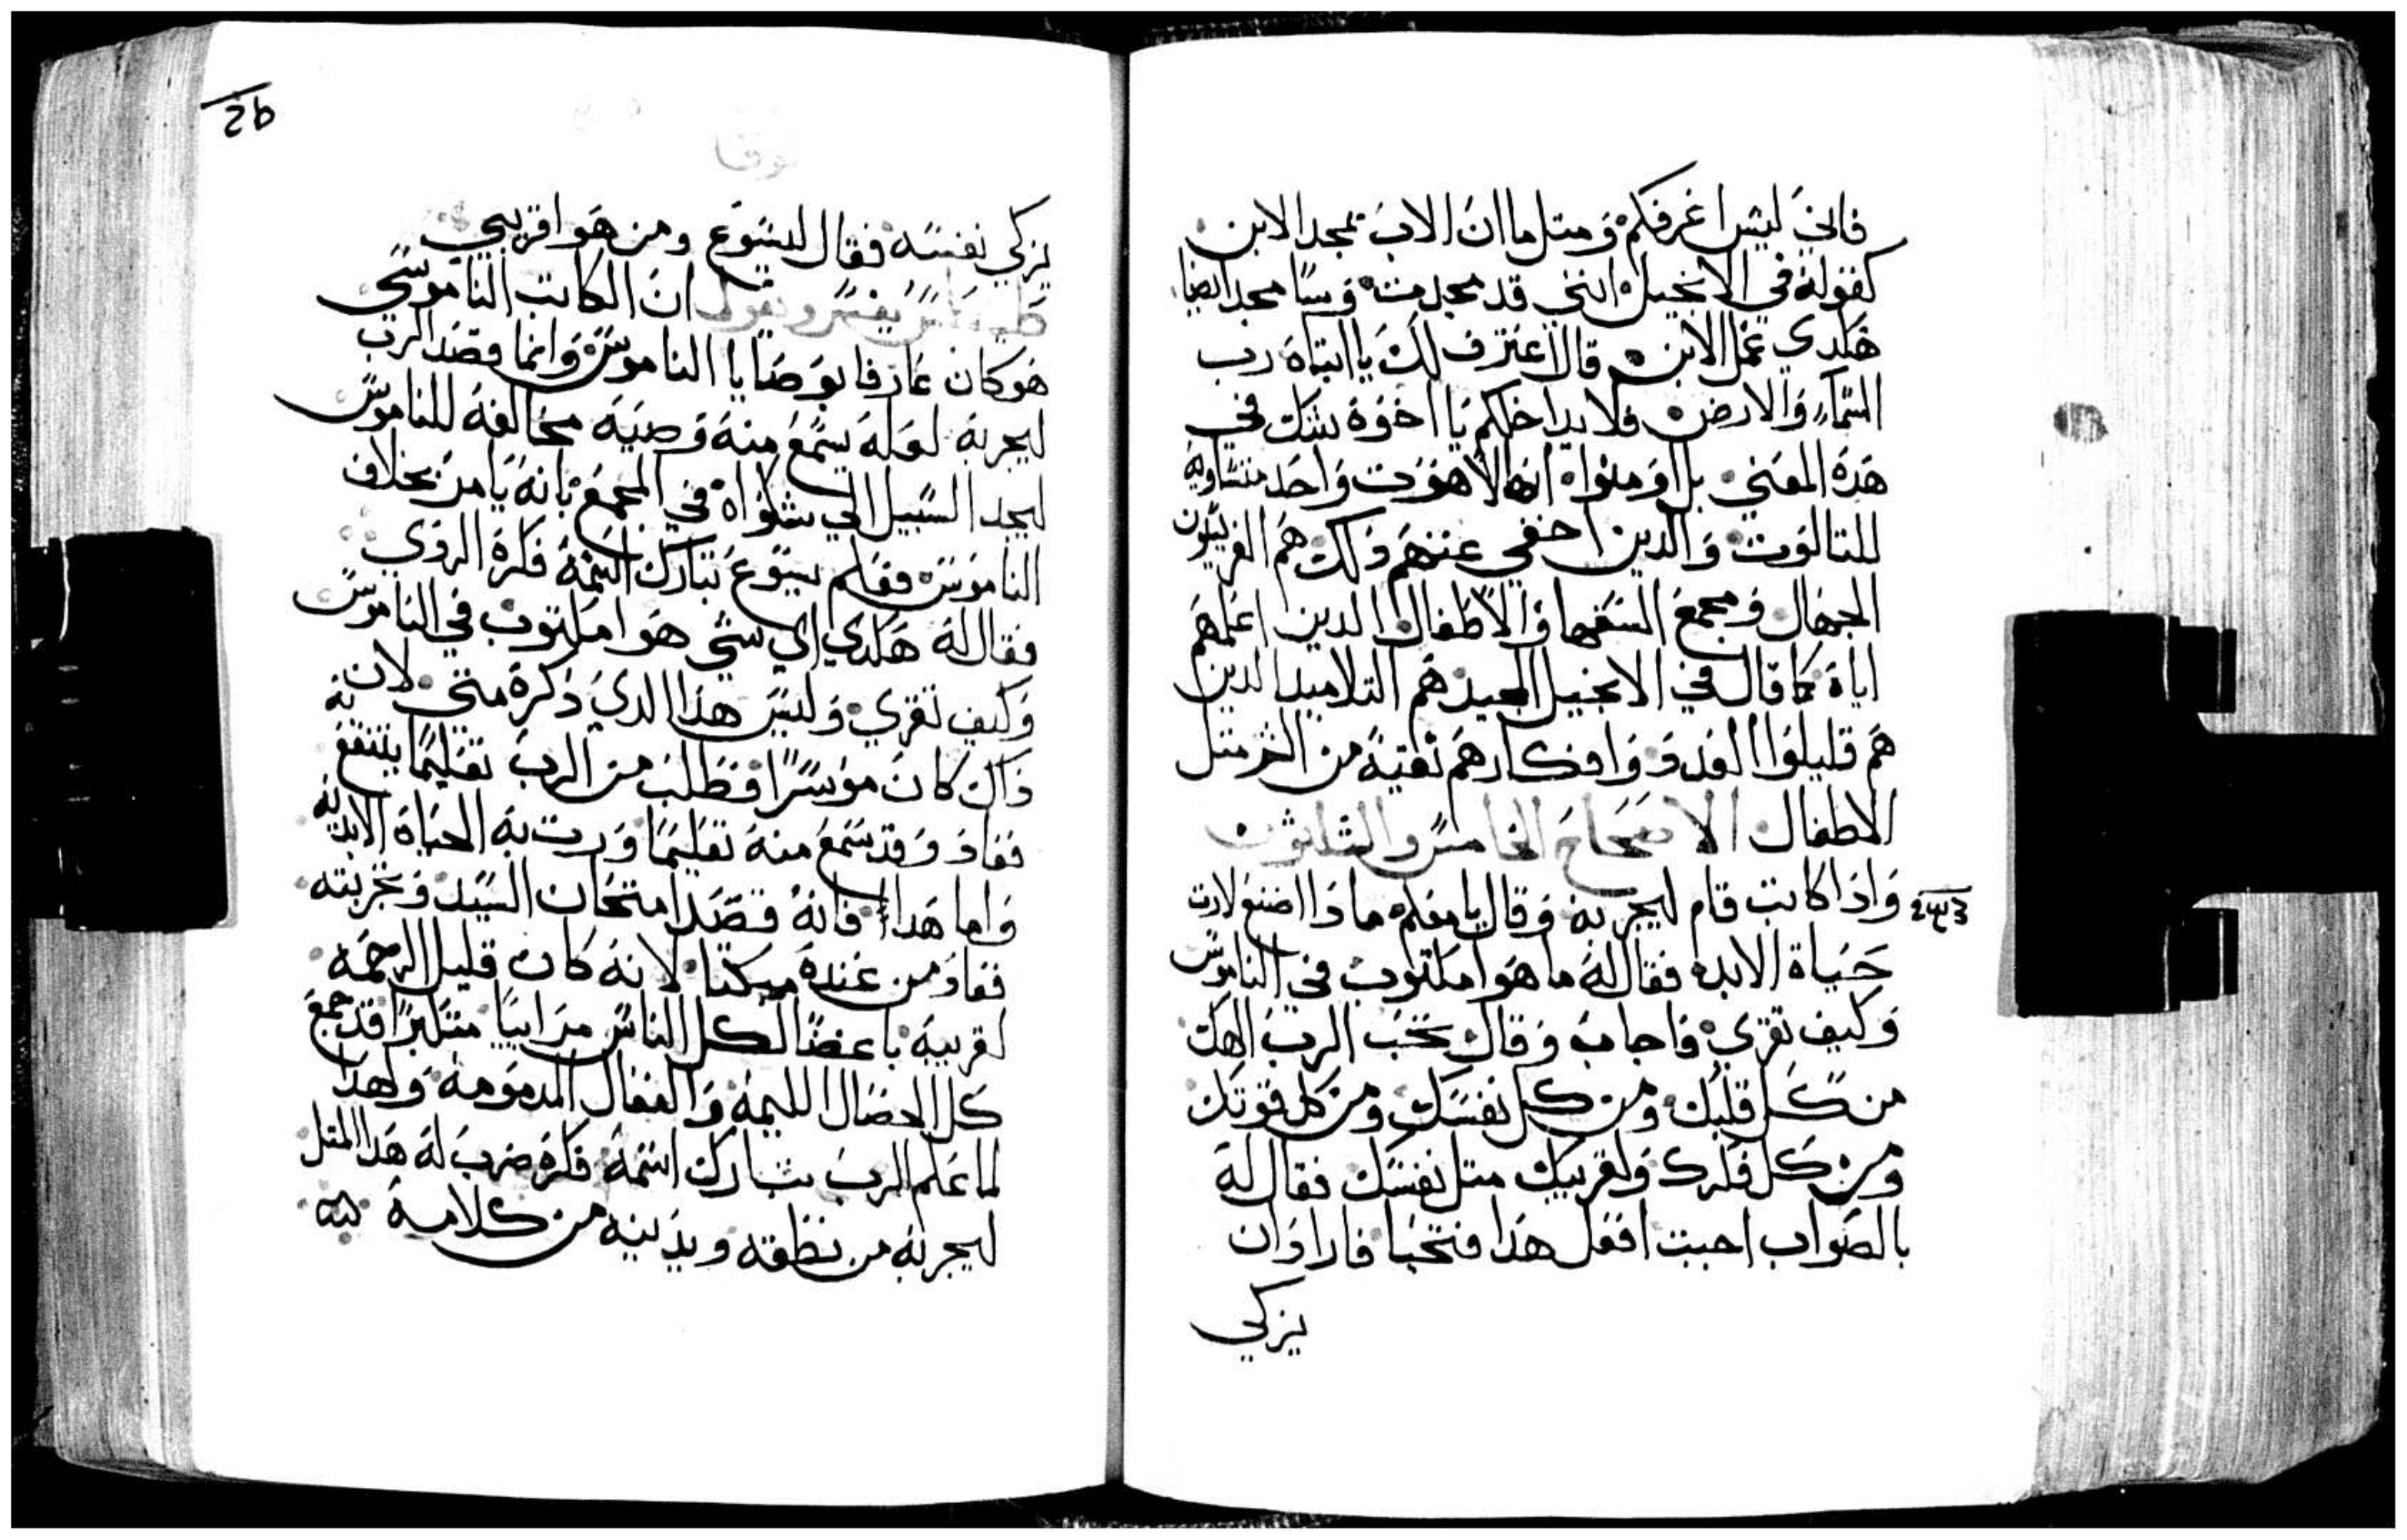 فاني ليس اعرفكم ومتل ما ان الاب يمجد الابن
كقوله في الانجيل انني قد مجدت وسا مجد ايضا
هكدي عمل الابن قال اعترف لك يا ابتاه رب
السماء والارض فلا يداخلكم يا اخوة شك في
هده المعني بل اومنوا انه لاهوت واحد متساويه
للتالوت والدين اخفي عنهم دلك هم الفريسيون
الجهال ومجمع السفها والاطفال الدين اعلمهم
اياه كما قال في الانجيل المجيد هم التلاميد الدين
هم قليلوا العدد وافكارهم نقيه من الشر متل
الاطفال الاصحاح الخامس والثلثون
واذا كاتب قام ليجربه وقال يا معلم ماذا اصنع لارت
حياة الابد فقال له ما هو امكتوب في الناموس
وكيف تقري فاجاب وقال تحب الرب الهك
من كل قلبك ومن كل نفسك ومن كل قوتك
ومن كل فكرك ولقريبك متل نفسك فقال له
بالصواب اجبت افعل هذا فتحيا فاراد ان
يزكي
26
لوقا
يزكي نفسه فقال ليسوع ومن هو اقريبي
يفسر ويقول ان الكاتب الناموسي
هو كان عارفا بوصايا الناموس وانما قصد الرب
ليجربه لعله يسمع منه وصيه مخالفه للناموس
ليجد السبيل الي شكواه في المجمع بانه يامر بخلاف
الناموس فعلم يسوع تبارك اسمه فكره الردي
فقال له هكدي اي شي هو امكتوب في الناموس
وكيف تقري وليس هذا الدي ذكره متي لان
ذاك كان موسرا فطلب من الرب تعليما ينتفع به
فعاد وقد سمع منه تعليما ورت به الحياة الابديه
واما هدا فانه قصد امتحان السيد وتجربته
فعاد من عنده مبكتا لانه كان قليل الرحمه
لقريبه باغضا لكل الناس مرابيا متكبرا قد جمع
كل الخصال الليمه والفعال المدمومه ولهدا
لما علم الرب تبارك اسمه فكره ضرب له هدا المتل
ليجربه من نطقه ويدينه من كلامه